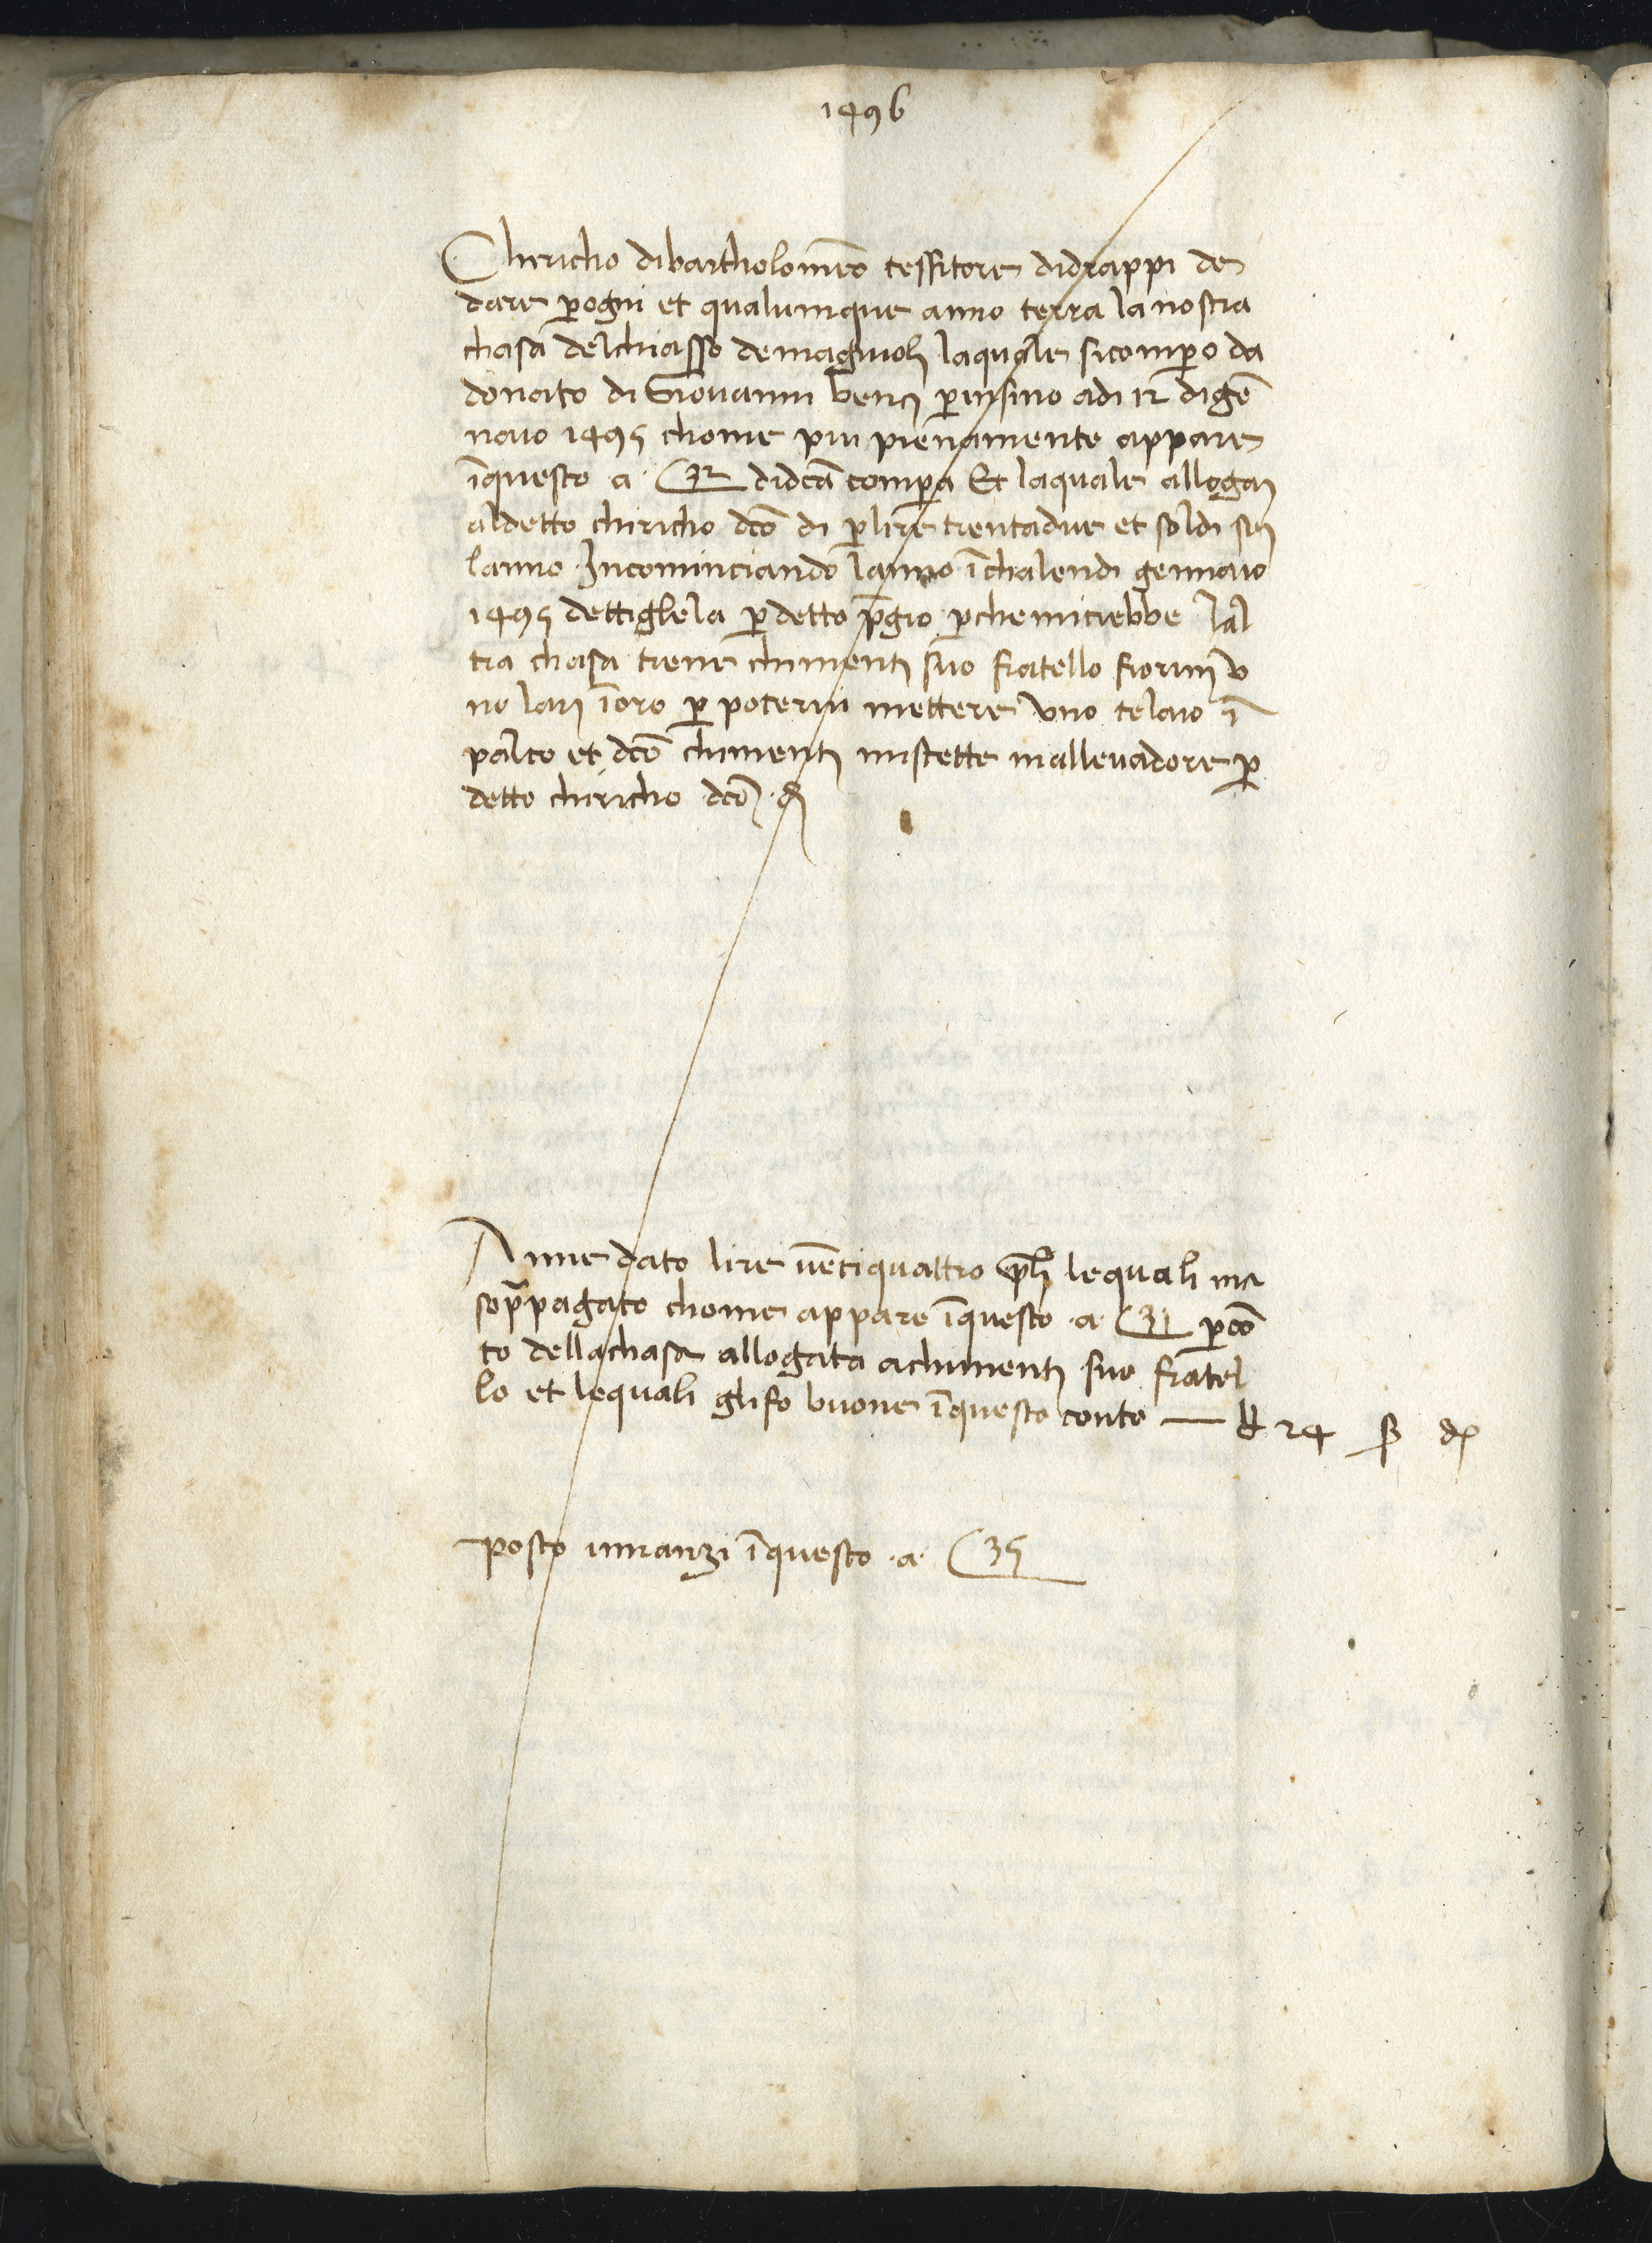 1496
Chiricho dibartholomeo tessitore didrappi de
dare p̱ogni et qualumque anno terra la nostra
chasa delchiasso demagnioli laquale sicompero da
donato di Giovanni benci p̱insino adi 12 digē
naio 1495 chome piu pienamente appare
īquesto a 32 didc̄a comp̱a Et laquale allogai
aldetto chiricho dc̄o di p̱lire trentadue et soldi sei
lanno Incominciando lanno īchalendi gennaio
1495 dettigliela p̱ detto p̄gio p̱chemicrebbe lal
tra chasa tiene chimenti suo fratello fiorini v
no lari īoro p̱ potervi mettere vno telaio ī
palco et dc̄o chimenti mistette mallevadore p̱
detto chiricho dc̄o
Anne dato lire vētiquattro p̄li lequali ma
sop̄pagato chome appare īquesto a 31 p̱cō
to dellachasa allogata achimenti suo fratel
lo et lequali glifo buone īquesto conto — ₶ 24 ſ d
posto innanzi īquesto a 35